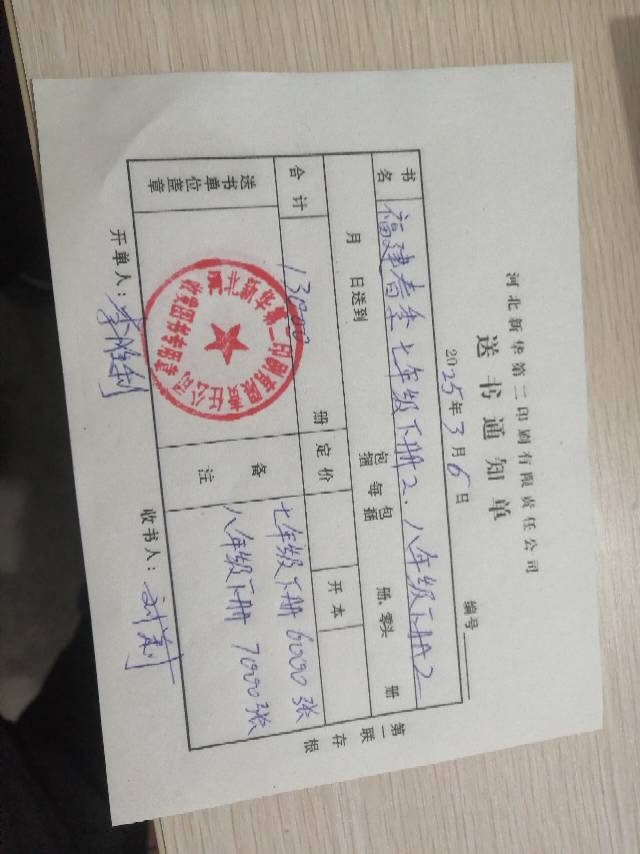 河北新华第二印刷有限责任公司
送书通知单
2025年3月6日
编号
书名 福建春季七年级下册2、八年级下册2
月 日送到 包捆 每包捆 册、零头 册
合计 13000 册 定价 开本
送书单位盖章
河北新华第二印刷有限责任公司
收发图书专用章
备注 七年级下册 6000张
八年级下册 7000张
开单人：李胜利 收书人：刘莉
第一联 存根